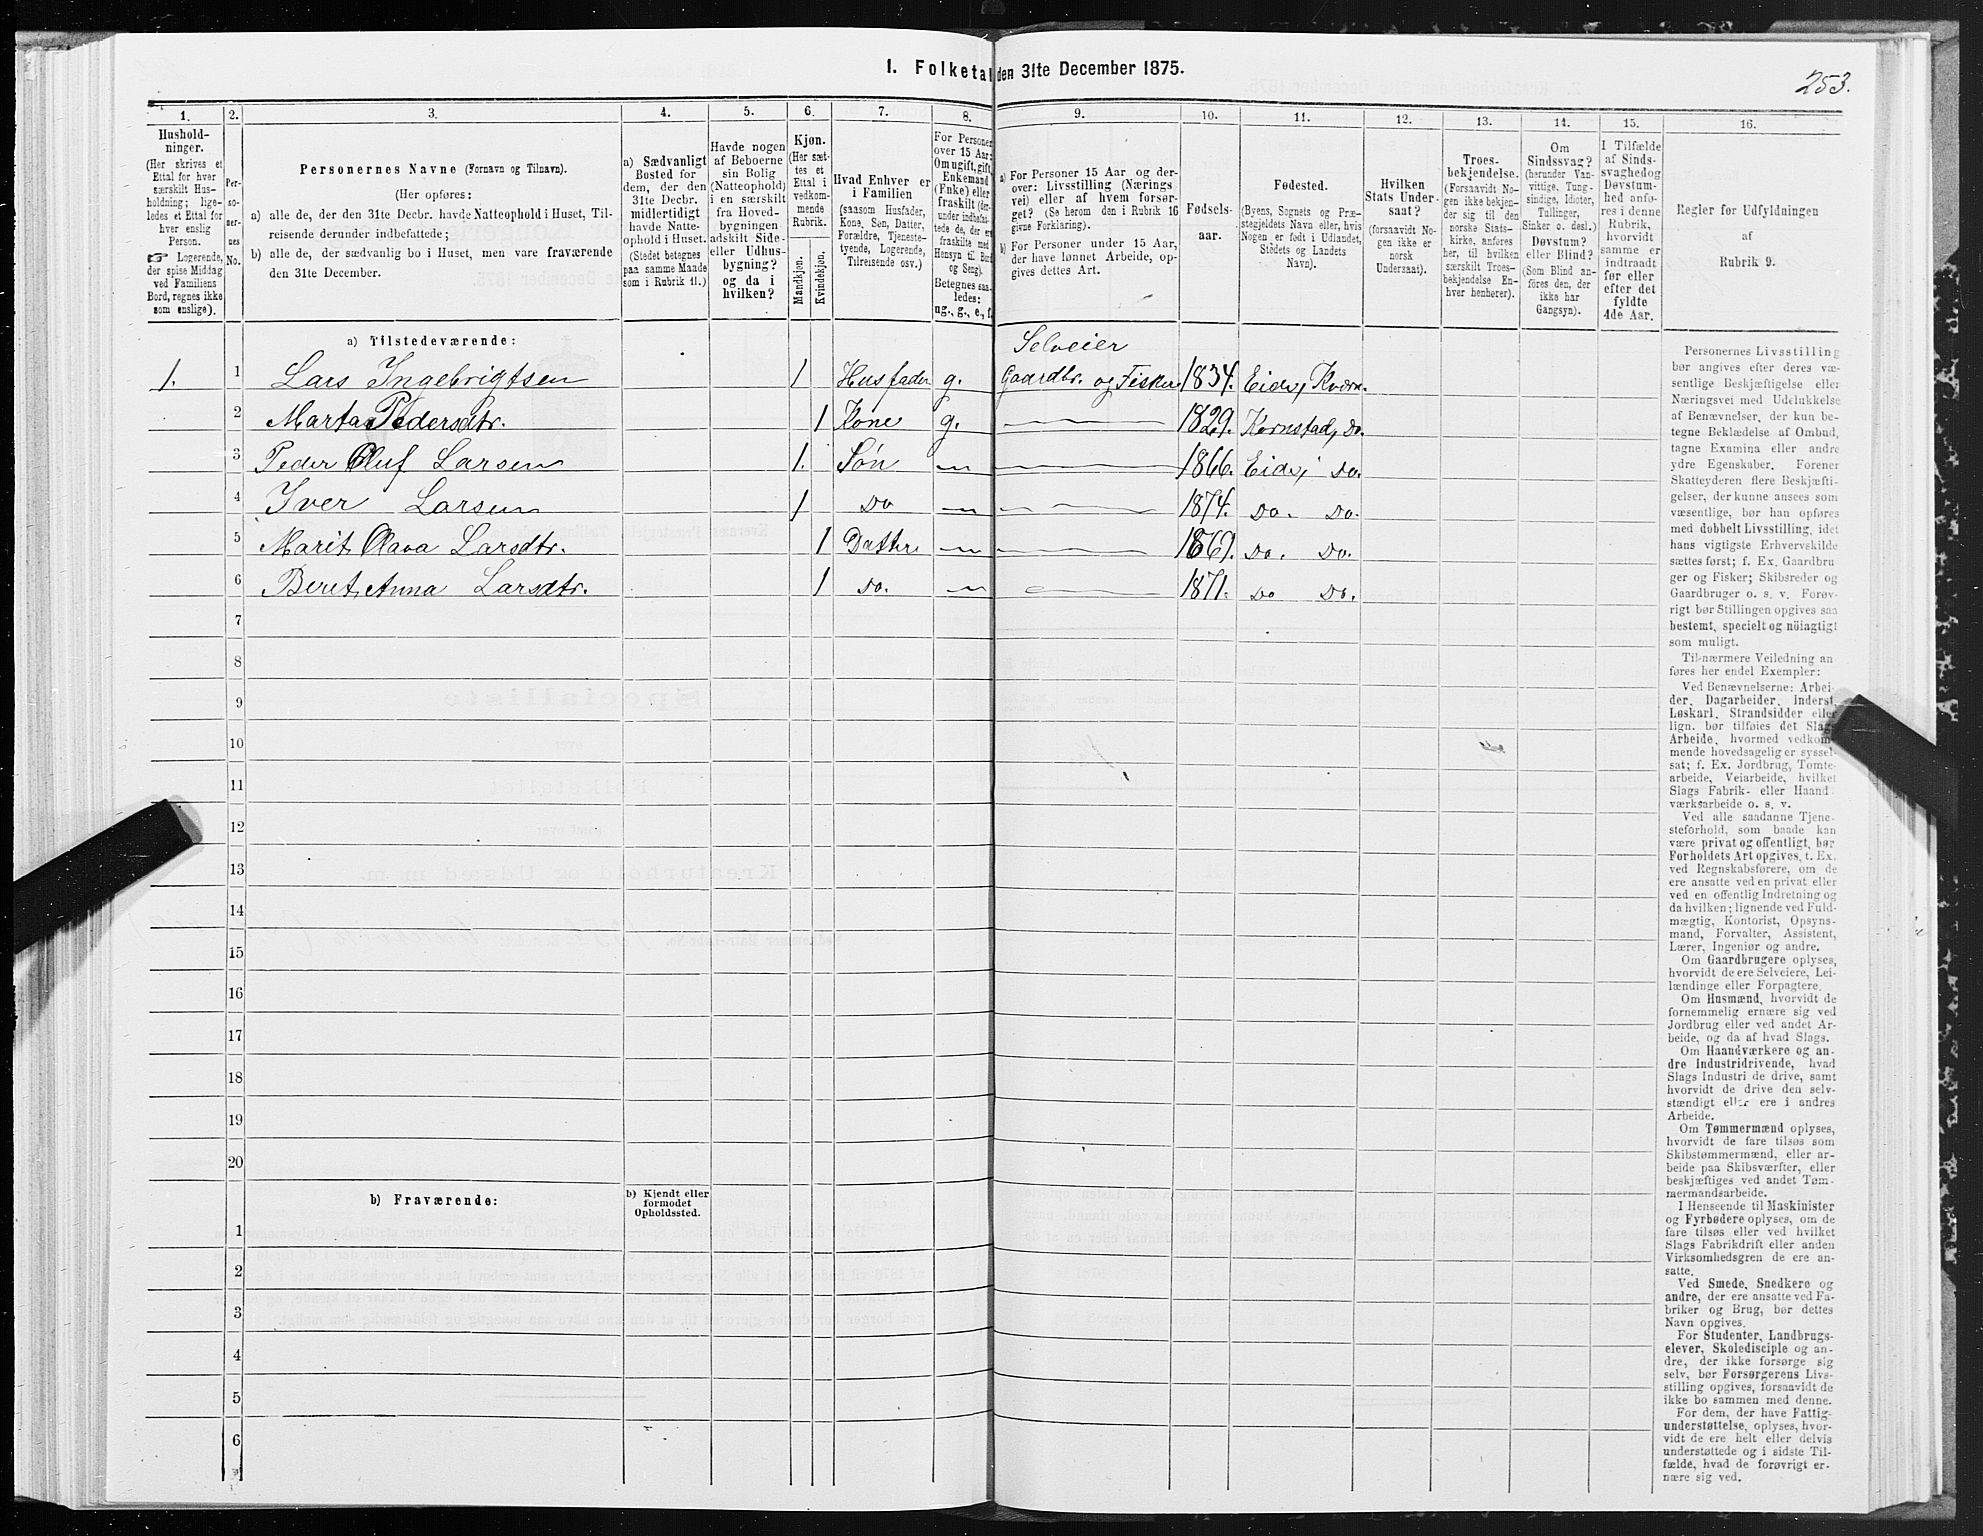 I. Folketal den 31te December 1875.
253.
1.
Hushold-
ninger.
(Her skrives et
Ettal for hver
særskilt Hus-
holdning; lige-
ledes et Ettal for
hver enslig
Person.
☞ Logerende,
der spise Middag
ved Familiens
Bord, regnes ikke
som enslige).
2.
Per-
so-
ner-
nes
No.
3.
Personernes Navne (Fornavn og Tilnavn).
(Her opføres:
a) alle de, der den 31te Decbr. havde Natteophold i Huset, Til-
reisende derunder indbefattede;
b) alle de, der sædvanlig bo i Huset, men vare fraværende
den 31te December.
4.
a) Sædvanligt
Bosted for
dem, der den
31te Decbr.
midlertidigt
havde Natte-
ophold i Huset.
(Stedet betegnes
paa samme Maade
som i Rubrik 11.)
5.
Havde nogen
af Beboerne
sin Bolig
(Natteophold)
i en særskilt
fra Hoved-
bygningen
adskilt Side-
eller Udhus-
bygning?
og da i
hvilken?
6.
Kjøn.
(Her sæt-
tes et
Ettal i
vedkom-
mende
Rubrik.
Mandkjøn.
Kvindekjøn.
7.
Hvad Enhver er
i Familien
(saasom Husfader,
Kone, Søn, Datter,
Forældre, Tjeneste-
tyende, Logerende,
Tilreisende osv.)
8.
For Personer
over 15 Aar:
Om ugift, gift,
Enkemand
(Enke) eller
fraskilt (der-
under indbefat-
tede de, der ere
fraskilte med
Hensyn til Bord
og Seng).
Betegnes saa-
ledes:
ug., g., e., f.
9.
a) For Personer 15 Aar og der-
over: Livsstilling (Nærings
vei) eller af hvem forsør-
get? (Se herom den i Rubrik 16
givne Forklaring).
b) For Personer under 15 Aar,
der have lønnet Arbeide, op-
gives dettes Art.
10.
Fødsels-
aar.
11.
Fødested.
(Byens, Sognets og Præ-
stegjeldets Navn eller, hvis
Nogen er født i Udlandet,
Stedets og Landets
Navn).
12.
Hvilken
Stats Under-
saat?
(forsaavidt No-
gen ikke er
norsk
Undersaat).
13.
Troes-
bekjendelse.
(Forsaavidt No-
gen ikke bekjen-
der sig til den
norske Stats-
kirke, anføres
her, til hvilken
særskilt Troes-
bekjendelse En-
hver henhører).
14.
Om
Sindssvag?
(herunder Van-
vittige, Tung-
sindige, Idioter,
Tullinger,
Sinker o. desl.)
Døvstum?
eller Blind?
(Som Blind an-
føres den, der
ikke har
Gangsyn).
15.
I Tilfælde
af Sinds-
svaghed og
Døvstum-
hed anfø-
res i denne
Rubrik,
hvorvidt
samme er
indtraadt
før eller
efter det
fyldte
4de Aar.
16.
Regler for Udfyldningen
af
Rubrik 9.
a) Tilstedeværende:
Selveier
1. 1 Lars Ingebrigtsen 1 Husfader g. Gaardbr. og Fisker 1834. Eide, Kværn.
2 Marta Pedersdtr. 1 Kone g. 1829. Kornstad, Do.
3 Peder Oluf Larsen 1. Søn 1866. Eide, Do.
4 Iver Larsen 1 Do 1874. Do. Do.
5 Marit Olava Larsdtr. 1 Datter 1869. Do. Do.
6 Berit Anna Larsdtr. 1 Do. 1871. Do Do.
7
8
9
10
11
12
13
14
15
16
17
18
19
20
b) Fraværende:
b) Kjendt eller
formodet
Opholdssted.
1
2
3
4
5
6
Personernes Livsstilling
bør angives efter deres væ-
sentlige Beskjæftigelse eller
Næringsvei med Udelukkelse
af Benævnelser, der kun be-
tegne Beklædelse af Ombud,
tagne Examina eller andre
ydre Egenskaber. Forener
Skatteyderen flere Beskjæfti-
gelser, der kunne ansees som
væsentlige, bør han opføres
med dobbelt Livsstilling, idet
hans vigtigste Erhvervskilde
sættes først; f. Ex. Gaardbru
ger og Fisker; Skibsreder og
Gaardbruger o. s. v. Forøv-
rigt bør Stillingen opgives saa
bestemt, specielt og nøiagtigt
som muligt.
Til nærmere Veiledning an
føres her endel Exempler:
Ved Benævnelserne: Arbei-
der, Dagarbeider, Inderst,
Løskarl, Strandsidder eller
lign. bør tilføies det Slags
Arbeide, hvormed vedkom-
mende hovedsagelig er syssel-
sat; f. Ex. Jordbrug, Tomte-
arbeide, Veiarbeide, hvilket
Slags Fabrik- eller Haand-
værksarbeide o. s. v.
Ved alle saadanne Tjene-
steforhold, som baade kan
være privat og offentligt, bør
Forholdets Art opgives, t. Ex.
ved Regnskabsførere, om de
ere ansatte ved en privat eller
ved en offentlig Indretning og
da hvilken; lignende ved Fuld-
mægtig, Kontorist, Opsyns-
mand, Forvalter, Assistent,
Lærer, Ingeniør og andre.
Om Gaardbrugere oplyses,
hvorvidt de ere Selveiere, Lei-
lændinge eller Forpagtere.
Om Husmænd, hvorvidt de
fornemmelig ernære sig ved
Jordbrug eller ved andet Ar-
beide, og da af hvad Slags.
Om Haandværkere og an-
dre Industridrivende, hvad
Slags Industri de drive, samt
hvorvidt de drive den selv-
stændigt eller ere i andres
Arbeide.
Om Tømmermænd oplyses,
hvorvidt de fare tilsøs som
Skibstømmermænd, eller ar-
beide paa Skibsværfter, eller
beskjæftiges ved andet Tøm-
mermandsarbeide.
I Henseende til Maskinister
og Fyrbødere oplyses, om de
fare tilsøs eller ved hvilket
Slags Fabrikdrift eller anden
Virksomhedsgren de ere an-
satte.
Ved Smede, Snedkere og
andre, der ere ansatte ved Fa-
briker og Brug, bør dettes
Navn opgives.
For Studenter, Landbrugs-
elever, Skoledisciple og an-
dre, der ikke forsørge sig
selv, bør Forsørgerens Livs-
stilling opgives, forsaavidt de
ikke bo sammen med denne.
For dem, der have Fattig-
understøttelse, oplyses, hvor-
vidt de ere helt eller delvis
understøttede og i sidste Til-
fælde, hvad de forøvrigt er-
nære sig ved.